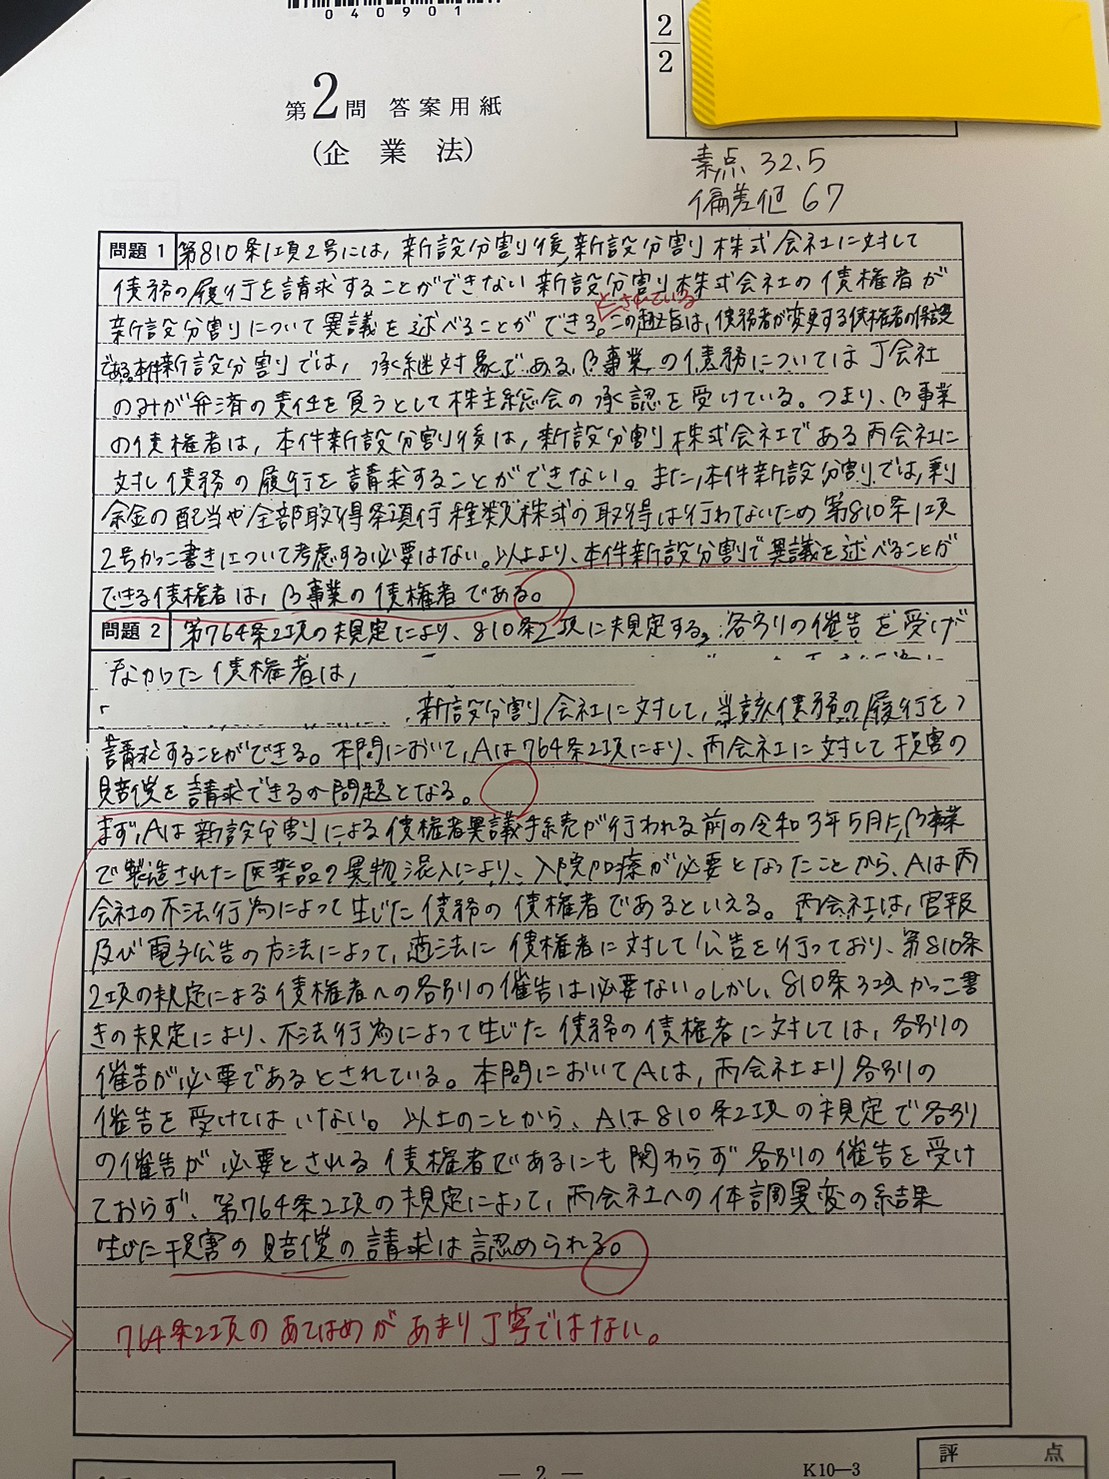 040901
2
2
第2問 答案用紙
(企業法)
素点 32.5
偏差値 67
問題1 第810条1項2号には、新設分割後、新設分割株式会社に対して
債務の履行を請求することができない新設分割株式会社の債権者が
とされている
新設分割について異議を述べることができる。この趣旨は、債務者が変更する債権者の保護
である本件新設分割では、承継対象である、β事業の債務については丁会社
のみが弁済の責任を負うとして株主総会の承認を受けている。つまり、β事業
の債権者は、本件新設分割後は、新設分割株式会社である丙会社に
対し債務の履行を請求することができない。また、本件新設分割では、剰
余金の配当や全部取得条項付種類株式の取得は行わないため第810条1項
2号かっこ書きについて考慮する必要はない。以上より、本件新設分割で異議を述べることが
できる債権者は、β事業の債権者である。
問題2 第764条2項の規定により、810条2項に規定する、各別の催告を受け
なかった債権者は、
新設分割会社に対して、当該債務の履行を
請求することができる。本問において、Aは764条2項により、丙会社に対して損害の
賠償を請求できるか問題となる。
まず、Aは新設分割による債権者異議手続が行われる前の令和3年5月にβ事業
で製造された医薬品の異物混入により、入院加療が必要となったことから、Aは丙
会社の不法行為によって生じた債務の債権者であるといえる。丙会社は、官報
及び電子公告の方法によって、適法に債権者に対して公告を行っており、第810条
2項の規定による債権者への各別の催告は必要ない。しかし、810条3項かっこ書
きの規定により、不法行為によって生じた債務の債権者に対しては、各別の
催告が必要であるとされている。本問においてAは、丙会社より各別の
催告を受けてはいない。以上のことから、Aは810条2項の規定で各別
の催告が必要とされる債権者であるにも関わらず各別の催告を受け
ておらず、第764条2項の規定によって、丙会社への体調異変の結果
生じた損害の賠償の請求は認められる。
764条2項のあてはめがあまり丁寧ではない。
評点
— 2 —
K10—3